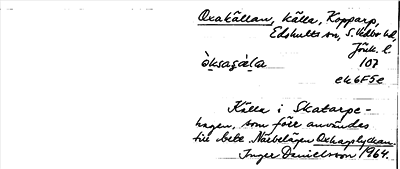 Oxakällan, källa, Kopparp,
Edshults sn, S. Vedbo hd,
Jönk. l.
òksaçä̀la 107
ek 6F5e
Källa i Skatarpe-
hagen, som förr användes
till bete. Närbelägen Oxhagslyckan.
Inger Danielsson 1964.